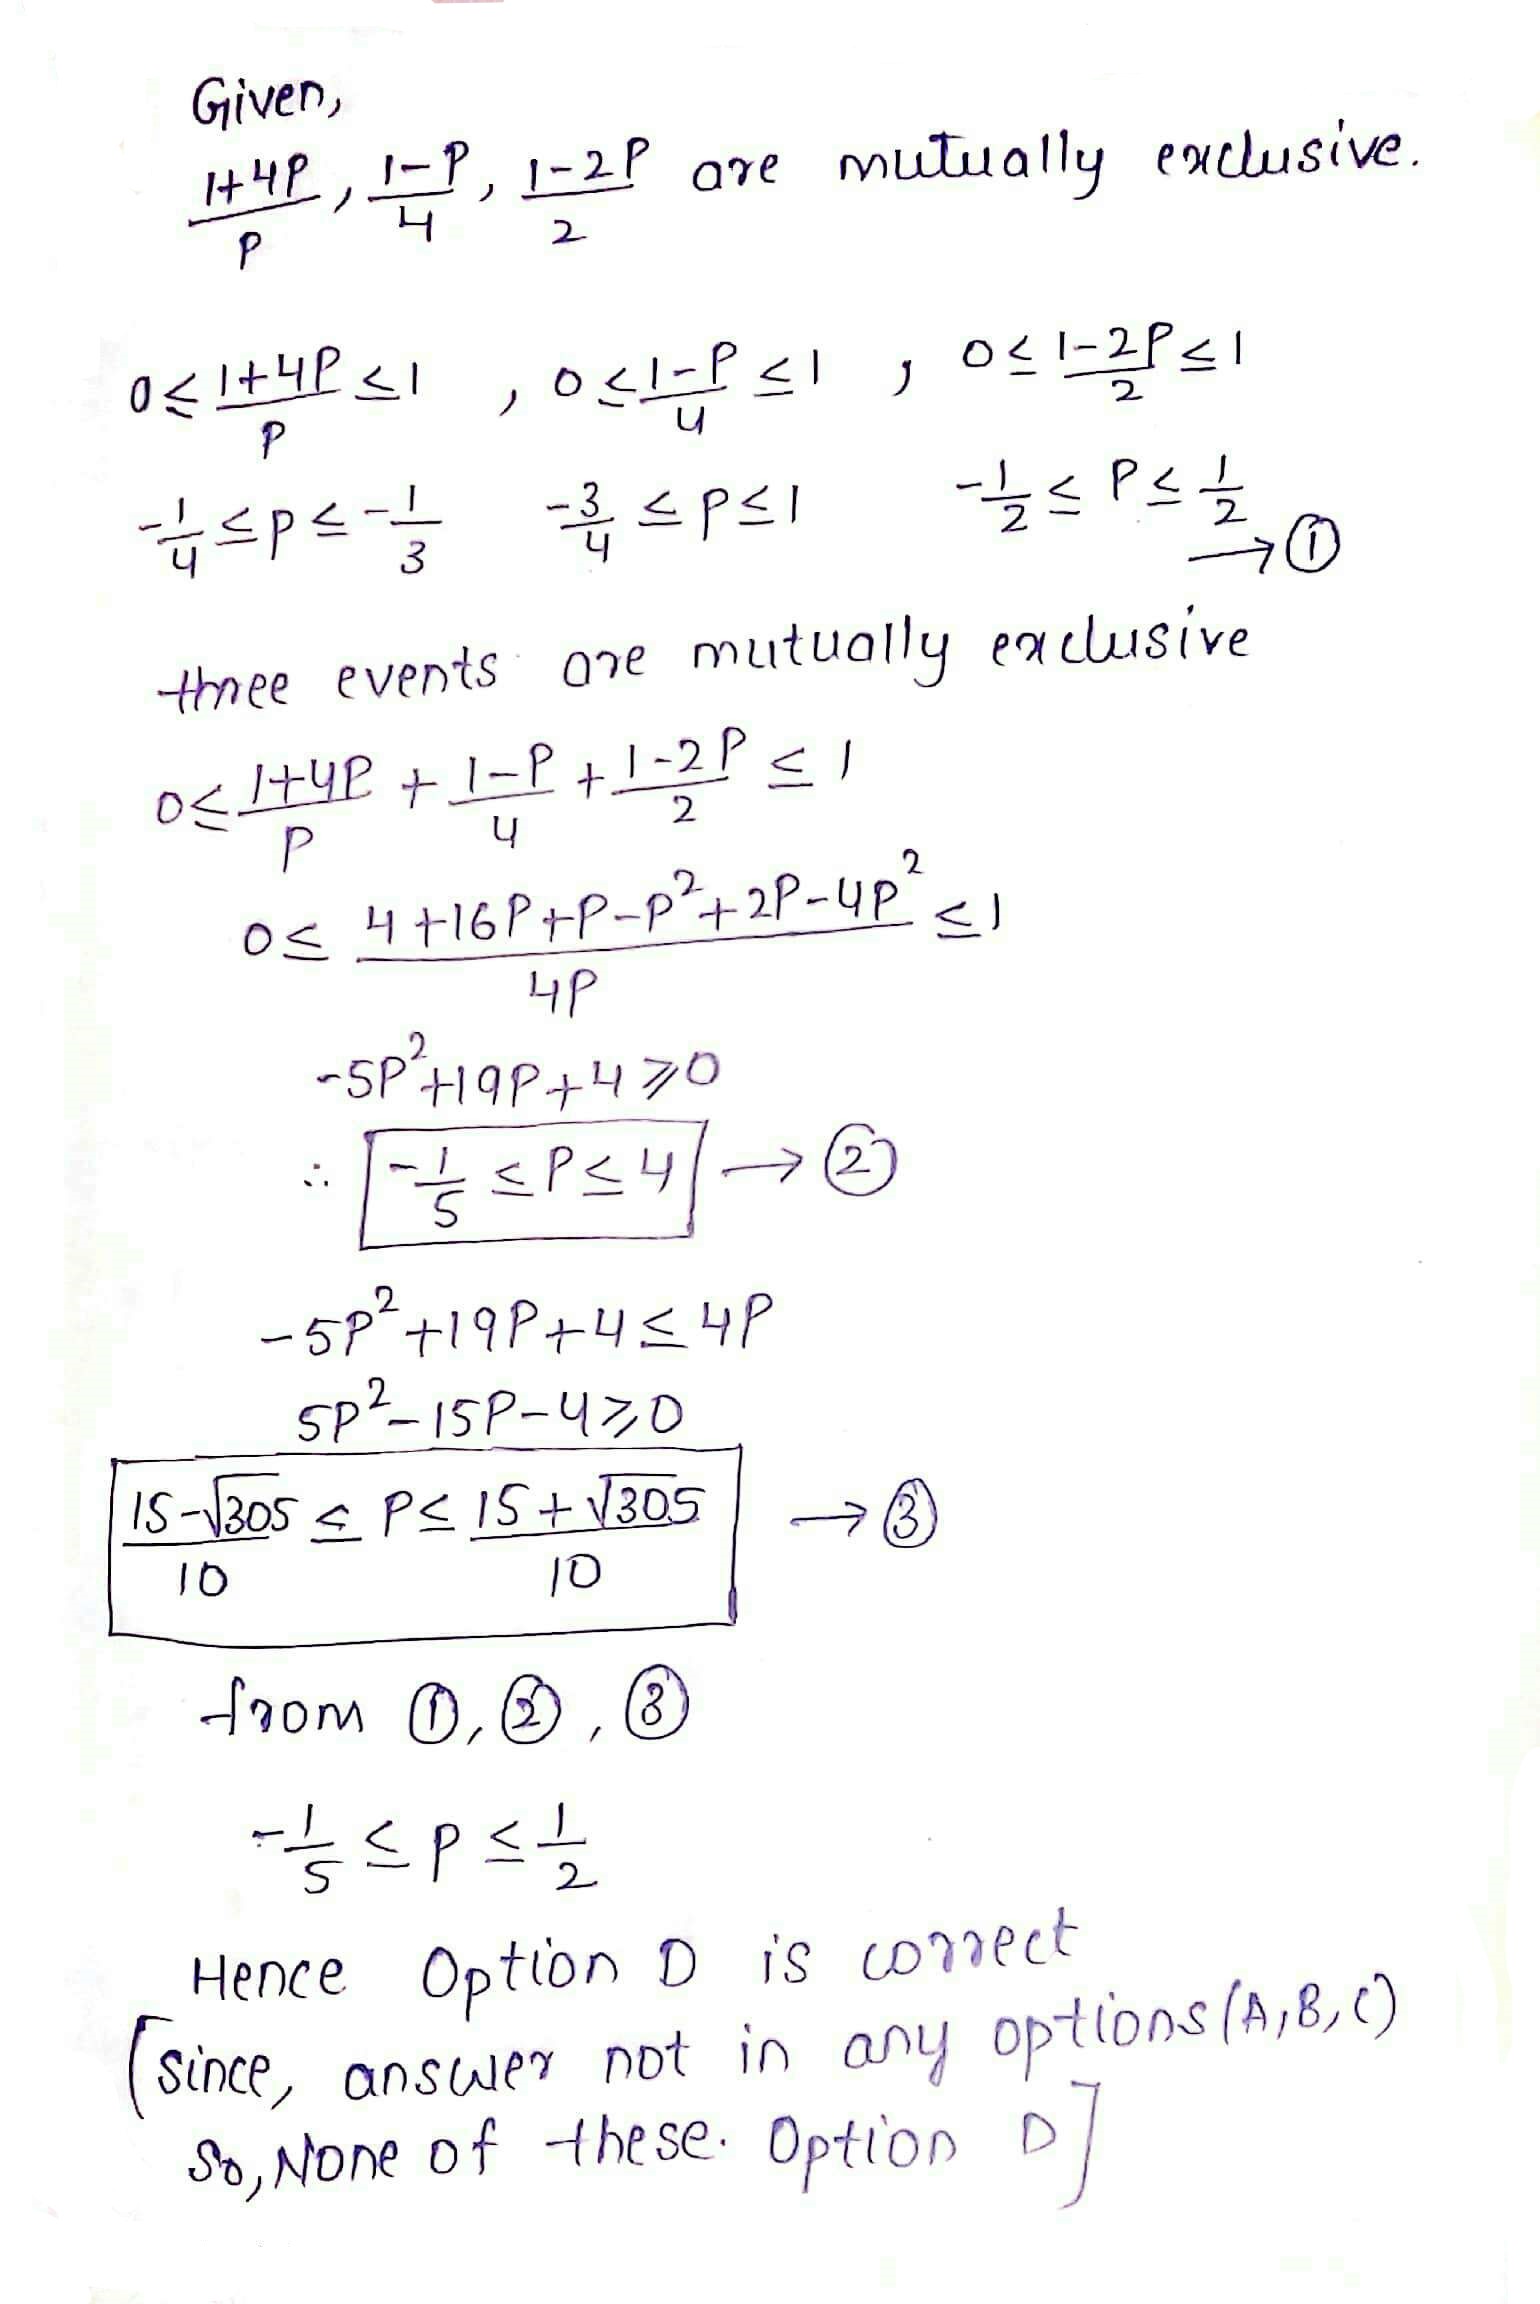 Given,
(1+4P)/P, (1-P)/4, (1-2P)/2 are mutually exclusive.
0≤(1+4P)/P≤1, 0≤(1-P)/4≤1, 0≤(1-2P)/2≤1
-1/4≤P≤-1/3 -3/4≤P≤1 -1/2≤P≤1/2 →①
three events are mutually exclusive
0≤(1+4P)/P+(1-P)/4+(1-2P)/2≤1
0≤(4+16P+P-P²+2P-4P²)/4P≤1
-5P²+19P+4≥0
∴ -1/5≤P≤4 →②
-5P²+19P+4≤4P
5P²-15P-4≥0
(15-√305)/10≤P≤(15+√305)/10 →③
from ①,②,③
-1/5≤P≤1/2
Hence Option D is correct
[since, answer not in any options(A,B,C)
So, None of these. Option D]